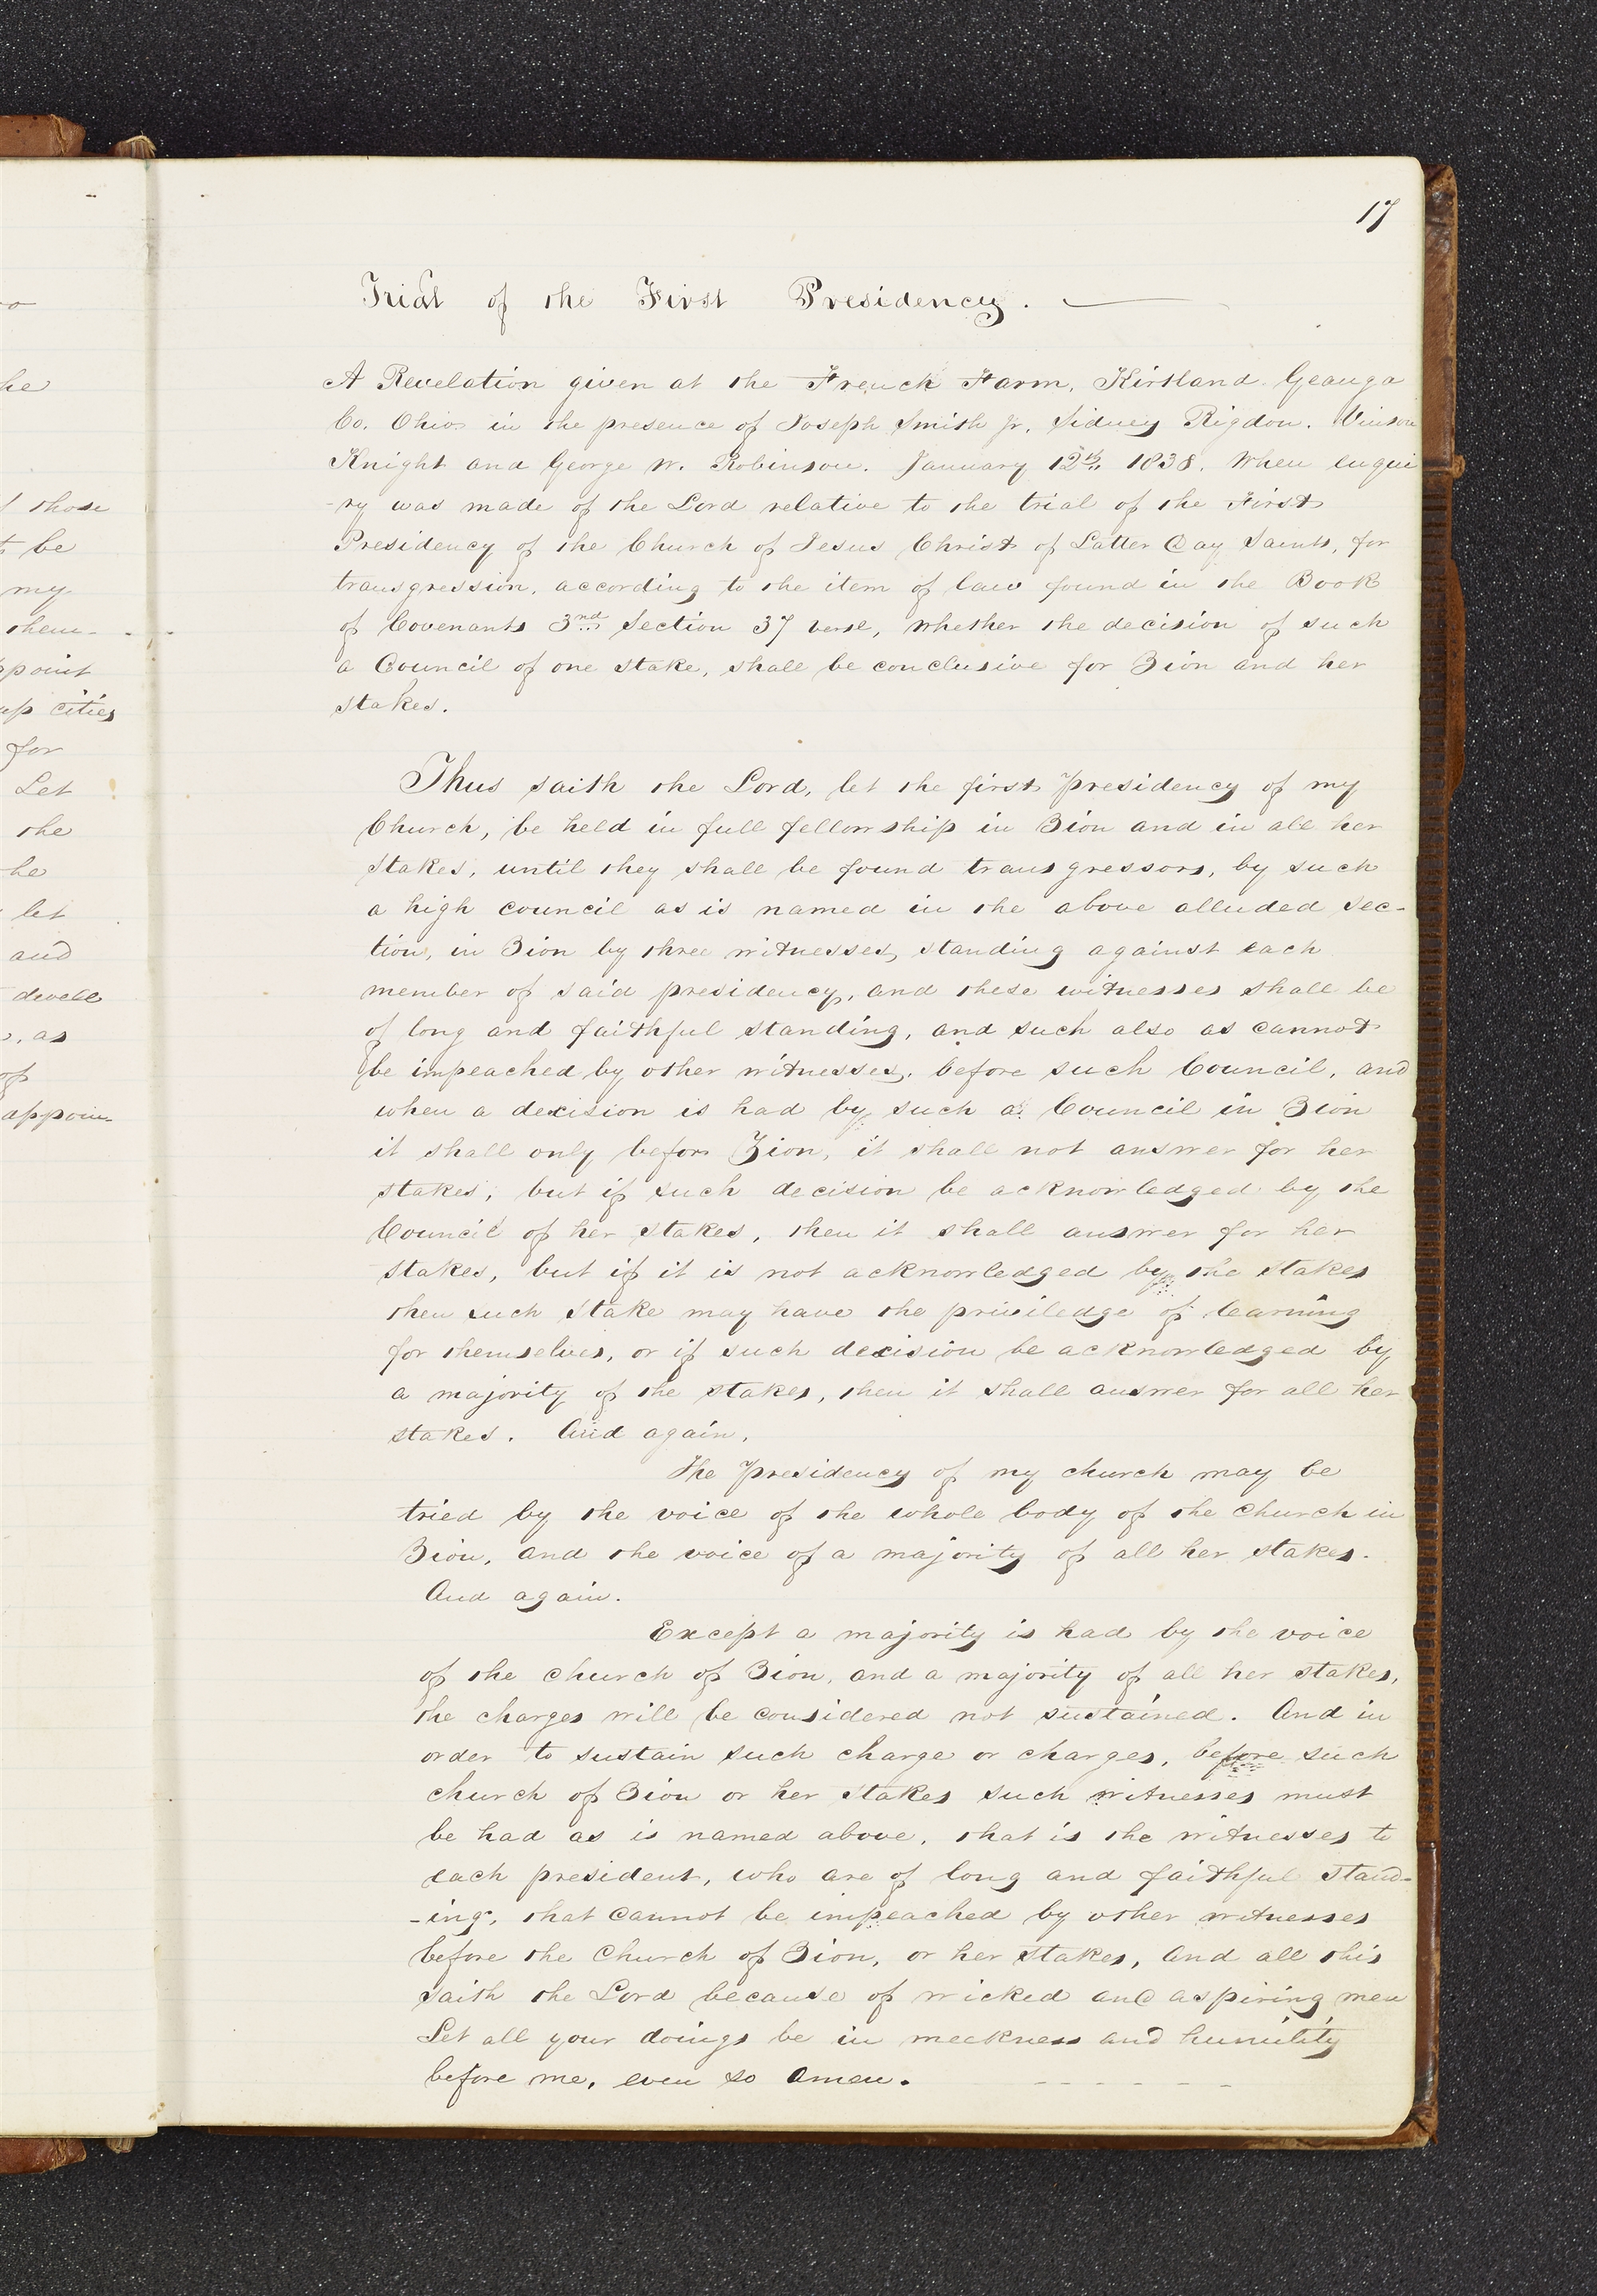 17
Trial of the First Presidency.
A Revelation given at the French Farm, Kirtland Geauga
Co. Ohio in the presence of Joseph Smith Jr, Sidney Rigdon. Vinson
Knight and George W. Robinson. January 12th, 1838. When enqui
-ry was made of the Lord relative to the trial of the First
Presidency of the Church of Jesus Christ of Latter Day Saints, for
transgression, according to the item of law found in the Book
of Covenants 3nd Section 37 verse, whether the decision of such
a Council of one stake, shall be conclusive for Zion and her
stakes.
Thus saith the Lord, let the first presidency of my
Church, be held in full fellowship in Zion and in all her
stakes, until they shall be found transgressors, by such
a high council as is named in the above alluded sec-
tion, in Zion by three witnesses, standing against each
member of said presidency, and these witnesses shall be
of long and faithful standing, and such also as cannot
be impeached by other witnesses, before such Council, and
when a decision is had by such a Council in Zion
it shall only befor Zion, it shall not answer for her
stakes, but if such decision be acknowledged by the
Council of her stakes, then it shall answer for her
stakes, but if it is not acknowledged by the stakes
then such stake may have the priviledge of learning
for themselves, or if such decision be acknowledged by
a majority of the stakes, then it shall answer for all her
stakes. And again,
The presidency of my church may be
tried by the voice of the whole body of the church in
Zion, and the voice of a majority of all her stakes.
And again.
Except a majority is had by the voice
of the church of Zion, and a majority of all her stakes,
the charges will be considered not sustained. And in
order to sustain such charge or charges, before such
church of Zion or her stakes such witnesses must
be had as is named above, that is the witnesses to
each president, who are of long and faithful stand-
-ing, that cannot be impeached by other witnesses
before the Church of Zion, or her stakes, And all this
saith the Lord because of wicked and aspiring men
Let all your doings be in meekness and humility
before me, even so Amen.
he
those
be
my
them-
point
up cities
for
Let
the
he
let
and
dwell
, as
of
appoin-